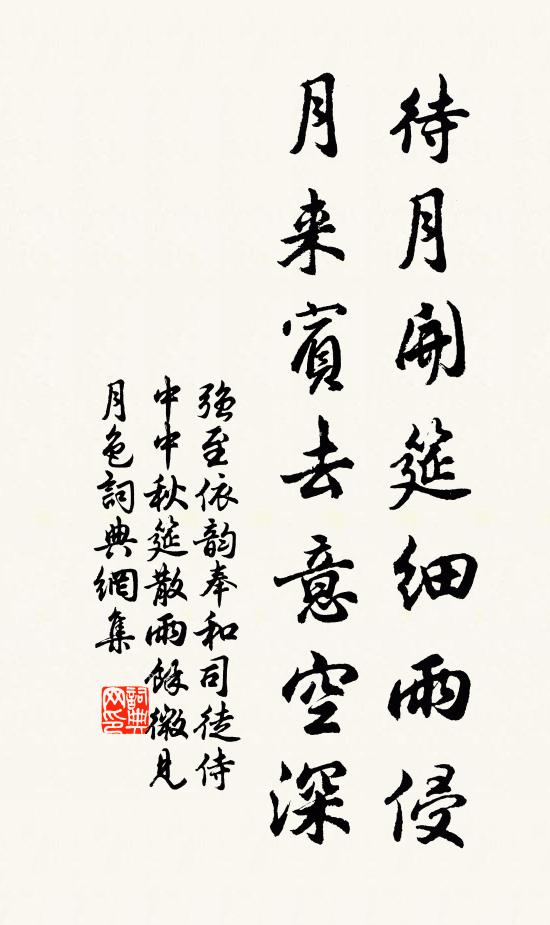 待月開筵細雨侵
月来賓去意空深
強至依韵奉和司徒侍
中中秋筵散雨餘微見
月色詞典網集
詞典网印